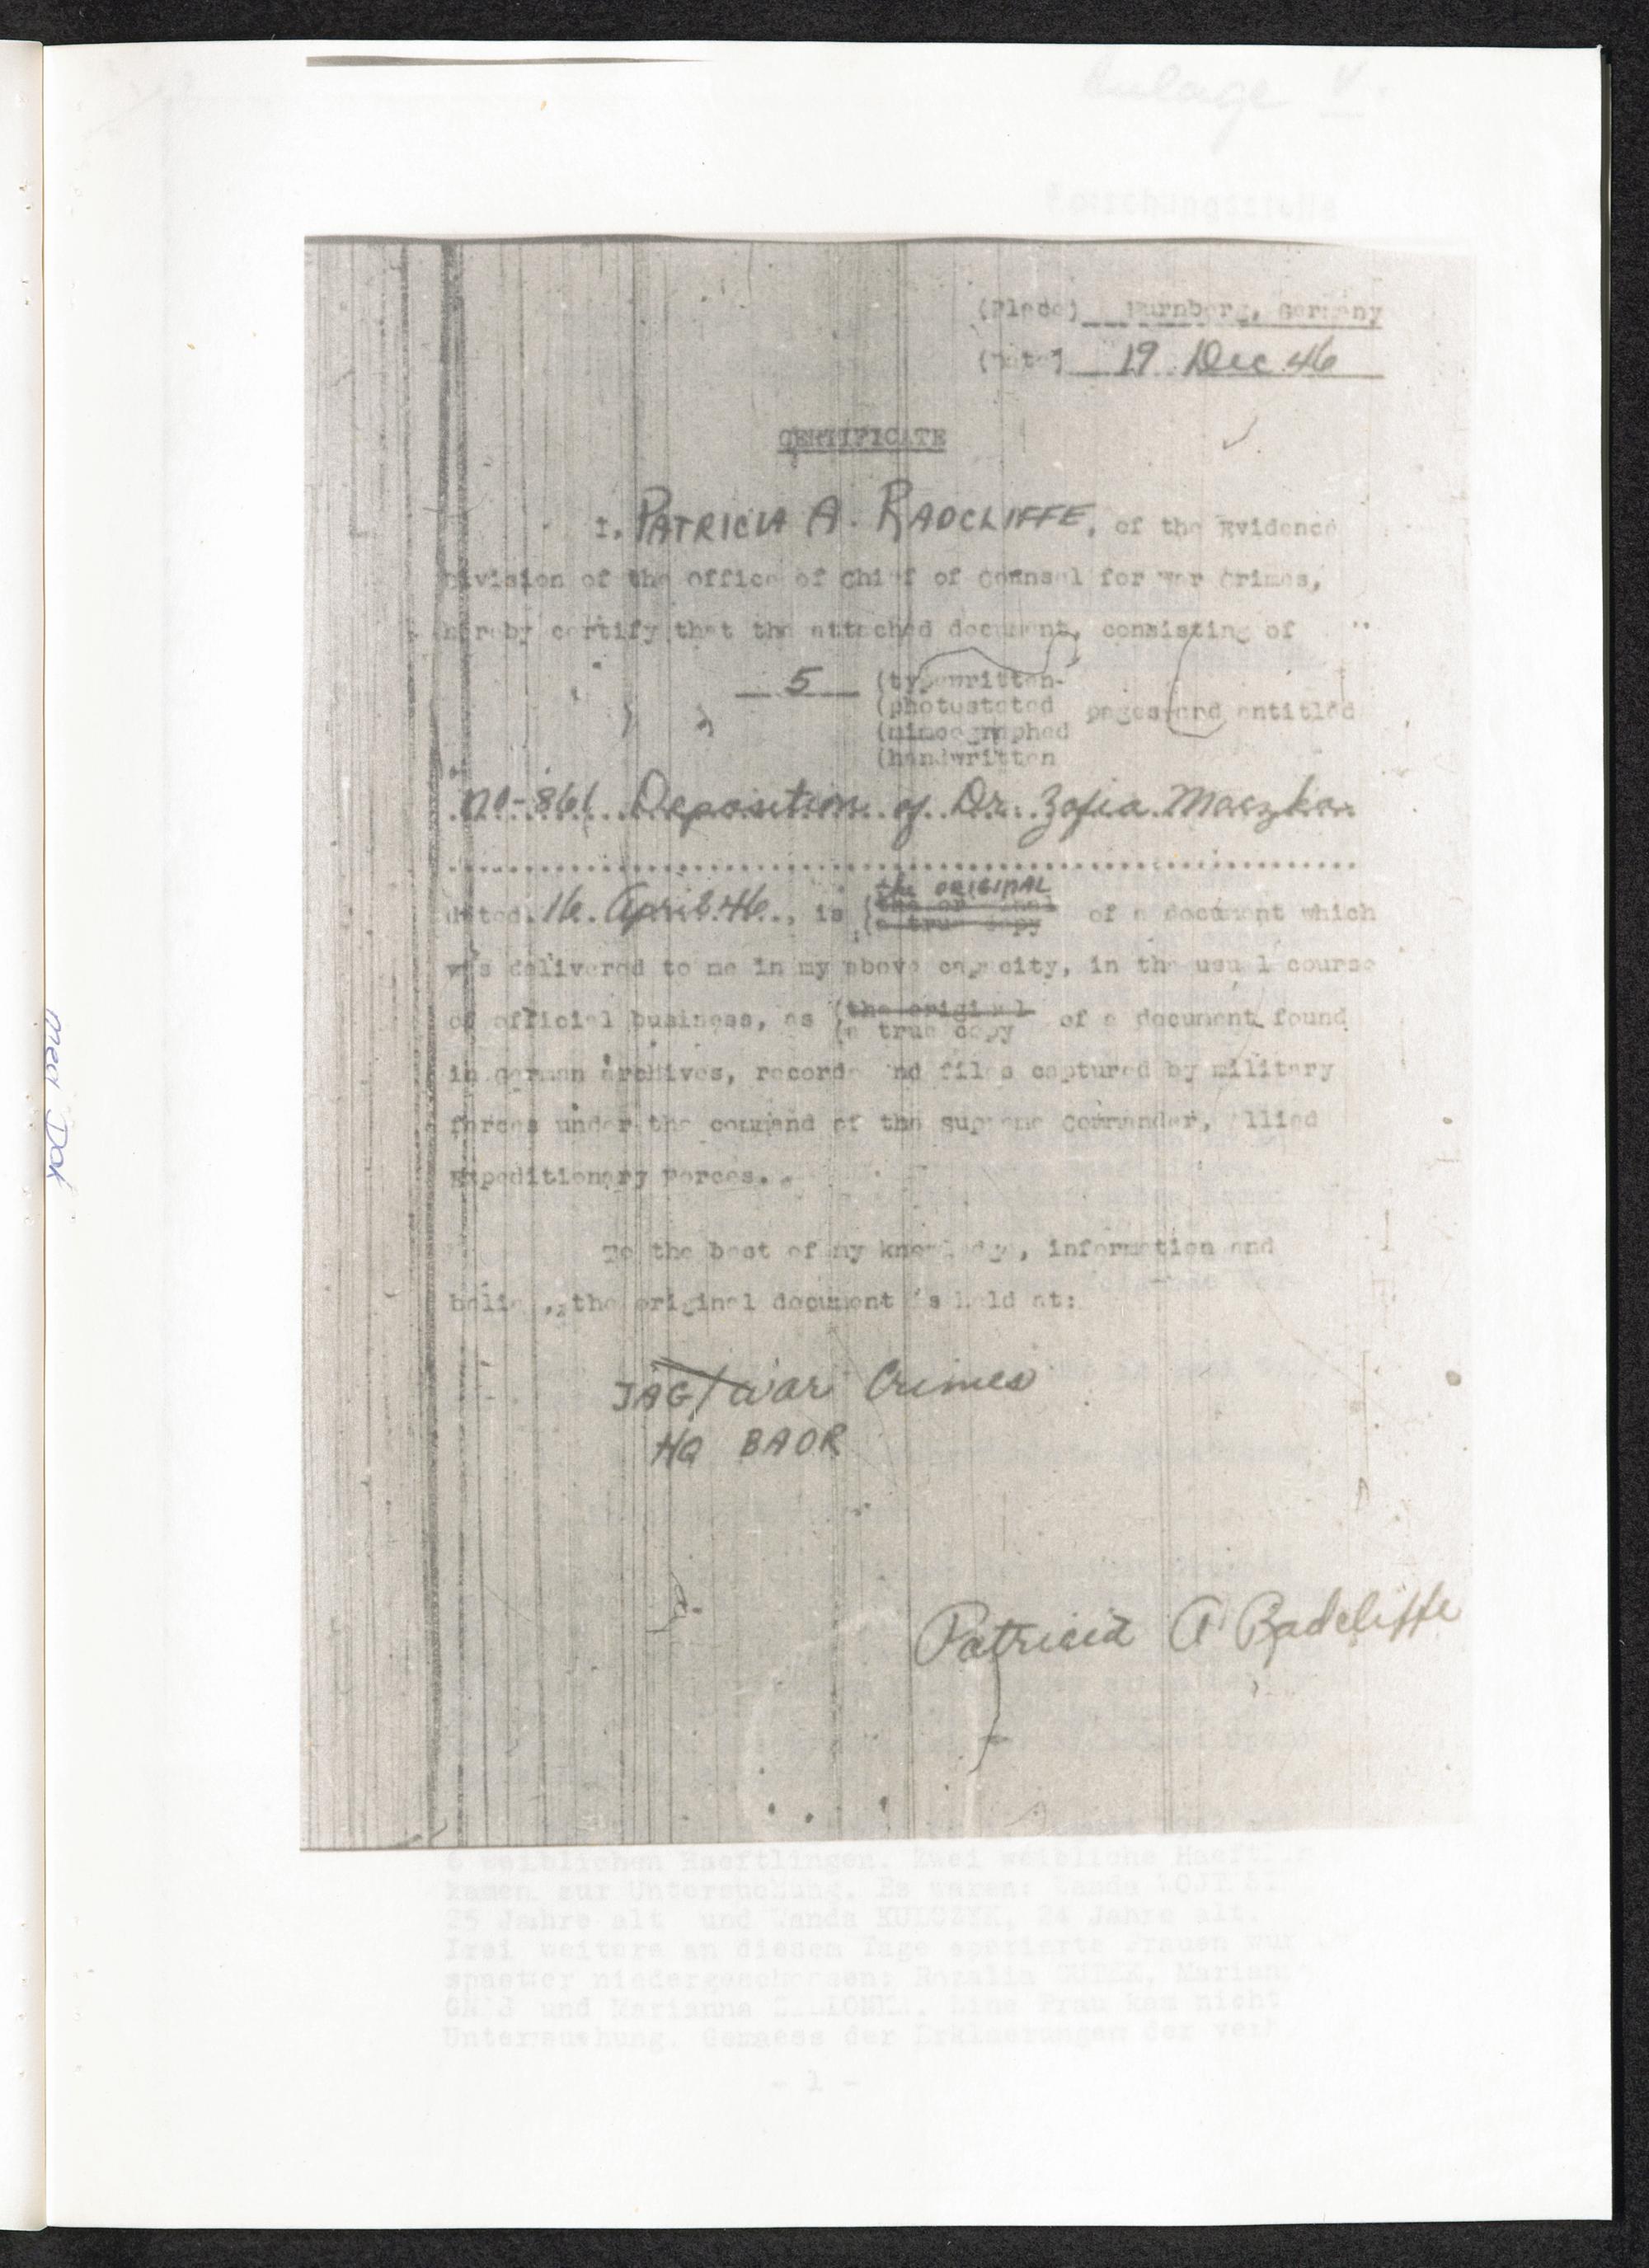 Anlage V.
Forschungsstelle
(Place) Nurnberg, Germany
(Date) 19 Dec 46
CERTIFICATE
I, PATRICIA A. RADCLIFFE, of the Evidence
Division of the Office of Chief of Counsel for War Crimes,
hereby certify that the attached document, consisting of
5 (typewritten
(photostated pages and entitled
(mimeographed
(handwritten
NO-861 Deposition of Dr. Zofia Maczka.
the ORIGINAL
dated 16. April 46., is (the original of a document which
(a true copy
was delivered to me in my above capacity, in the usual course
of official business, as (the original of a document found
(a true copy
in German archives, records and files captured by military
forces under the command of the Supreme Commander, Allied
Expeditionary Forces.
To the best of my knowledge, information and
belief, the original document is held at:
JAG/War Crimes
HQ BAOR
Patricia A Radcliffe
6 weiblichen Haeftlingen. Zwei weibliche
kamen zur Untersuchung. Es waren: Wanda
25 Jahre alt und Wanda KULCZYK, 24 Jahre alt.
Drei weitere an diesem Tage operierte Frauen
spaeter niedergeschossen: Rozalia GUTEK,
und Marianna Eine Frau kam nicht
Untersuchung. Gemaess der Erklaerungen der
- 1 -
Med Dok